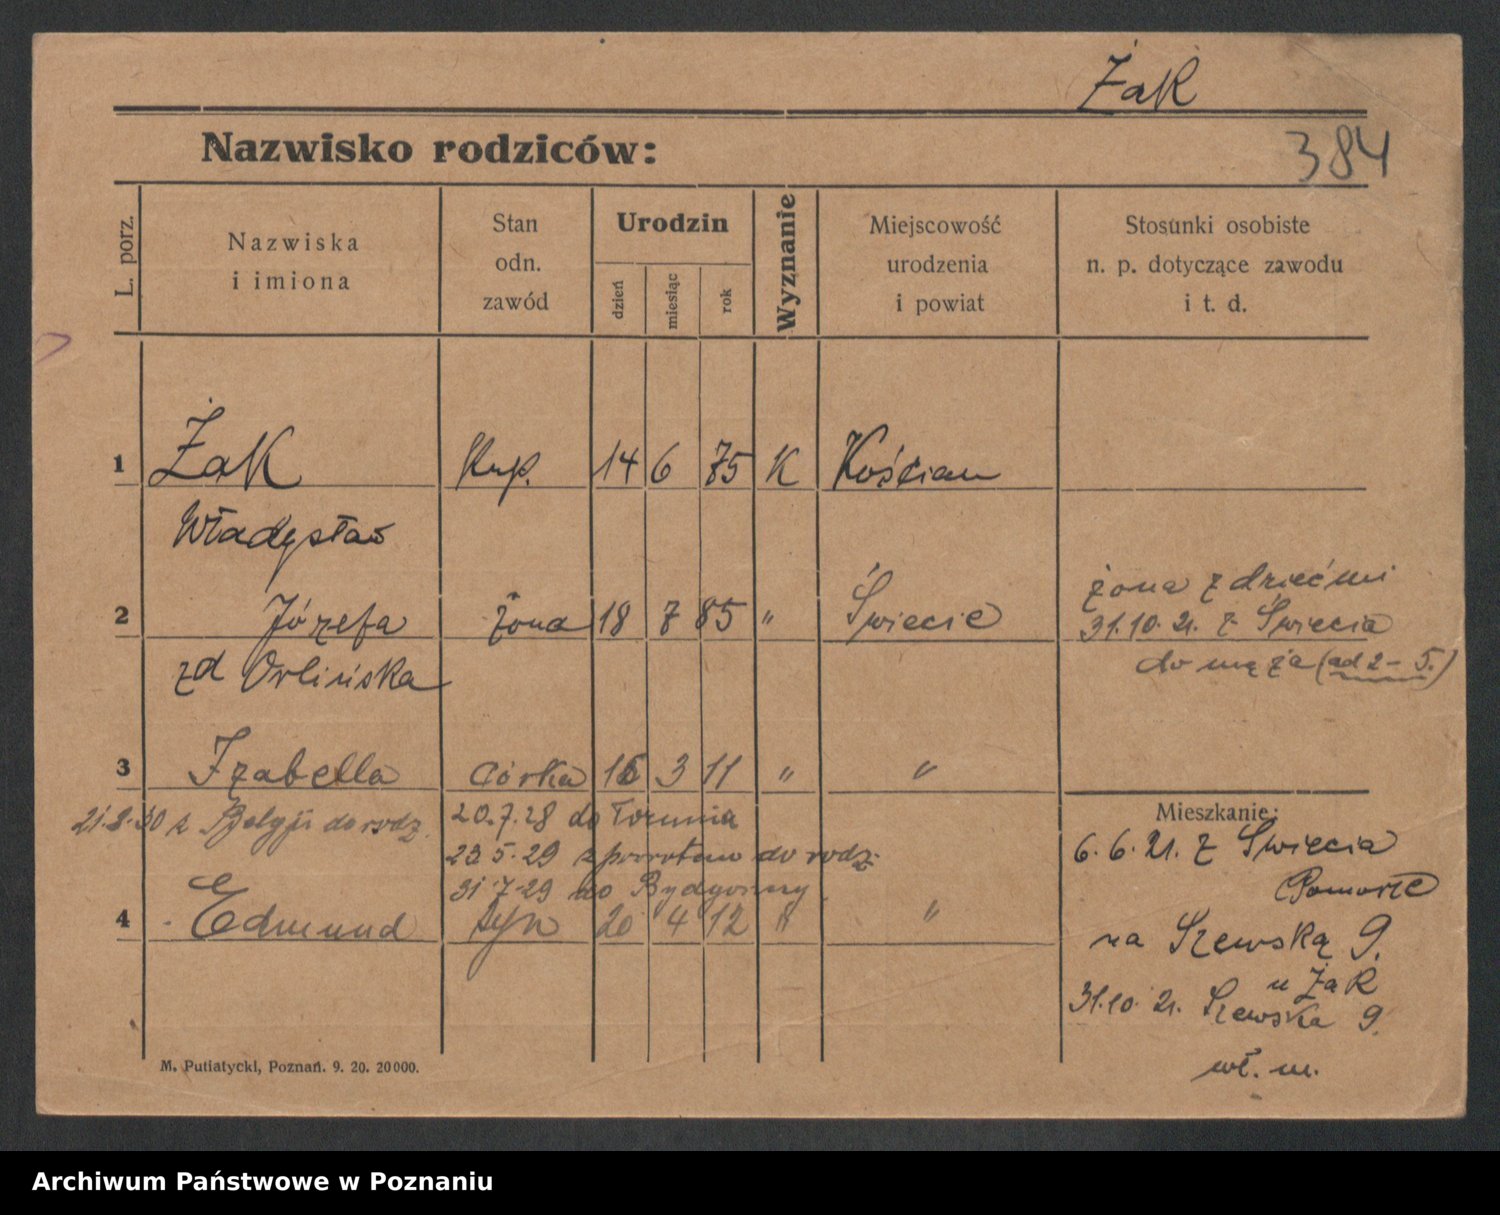 Żak
384
Nazwisko rodziców:
L. porz.
Nazwiska
i imiona
Stan
odn.
zawód
Urodzin
dzień
miesiąc
rok
Wyznanie
Miejscowość
urodzenia
i powiat
Stosunki osobiste
n. p. dotyczące zawodu
i t. d.
1 Żak Kup. 14 6 75 K Kościan
Władysław
żona z dziećmi
2 Józefa żona 18 7 85 " Świecie
31.10.21. z Świecia
zd Orlińska
do męża (ad 2 – 5.)
3 Izabella córka 16 3 11 " "
21.8.30 z Belgji do rodz.
20.7.28 do Torunia
23.5.29 z powrotem do rodz.
31.7.29 do Bydgoszczy
4 Edmund syn 20 4 12 " "
Mieszkanie:
6.6.21. z Świecia
Pomorze
na Szewską 9.
u Żak
31.10.21. Szewska 9.
wł. m.
M. Putiatycki, Poznań. 9. 20. 20000.
Archiwum Państwowe w Poznaniu